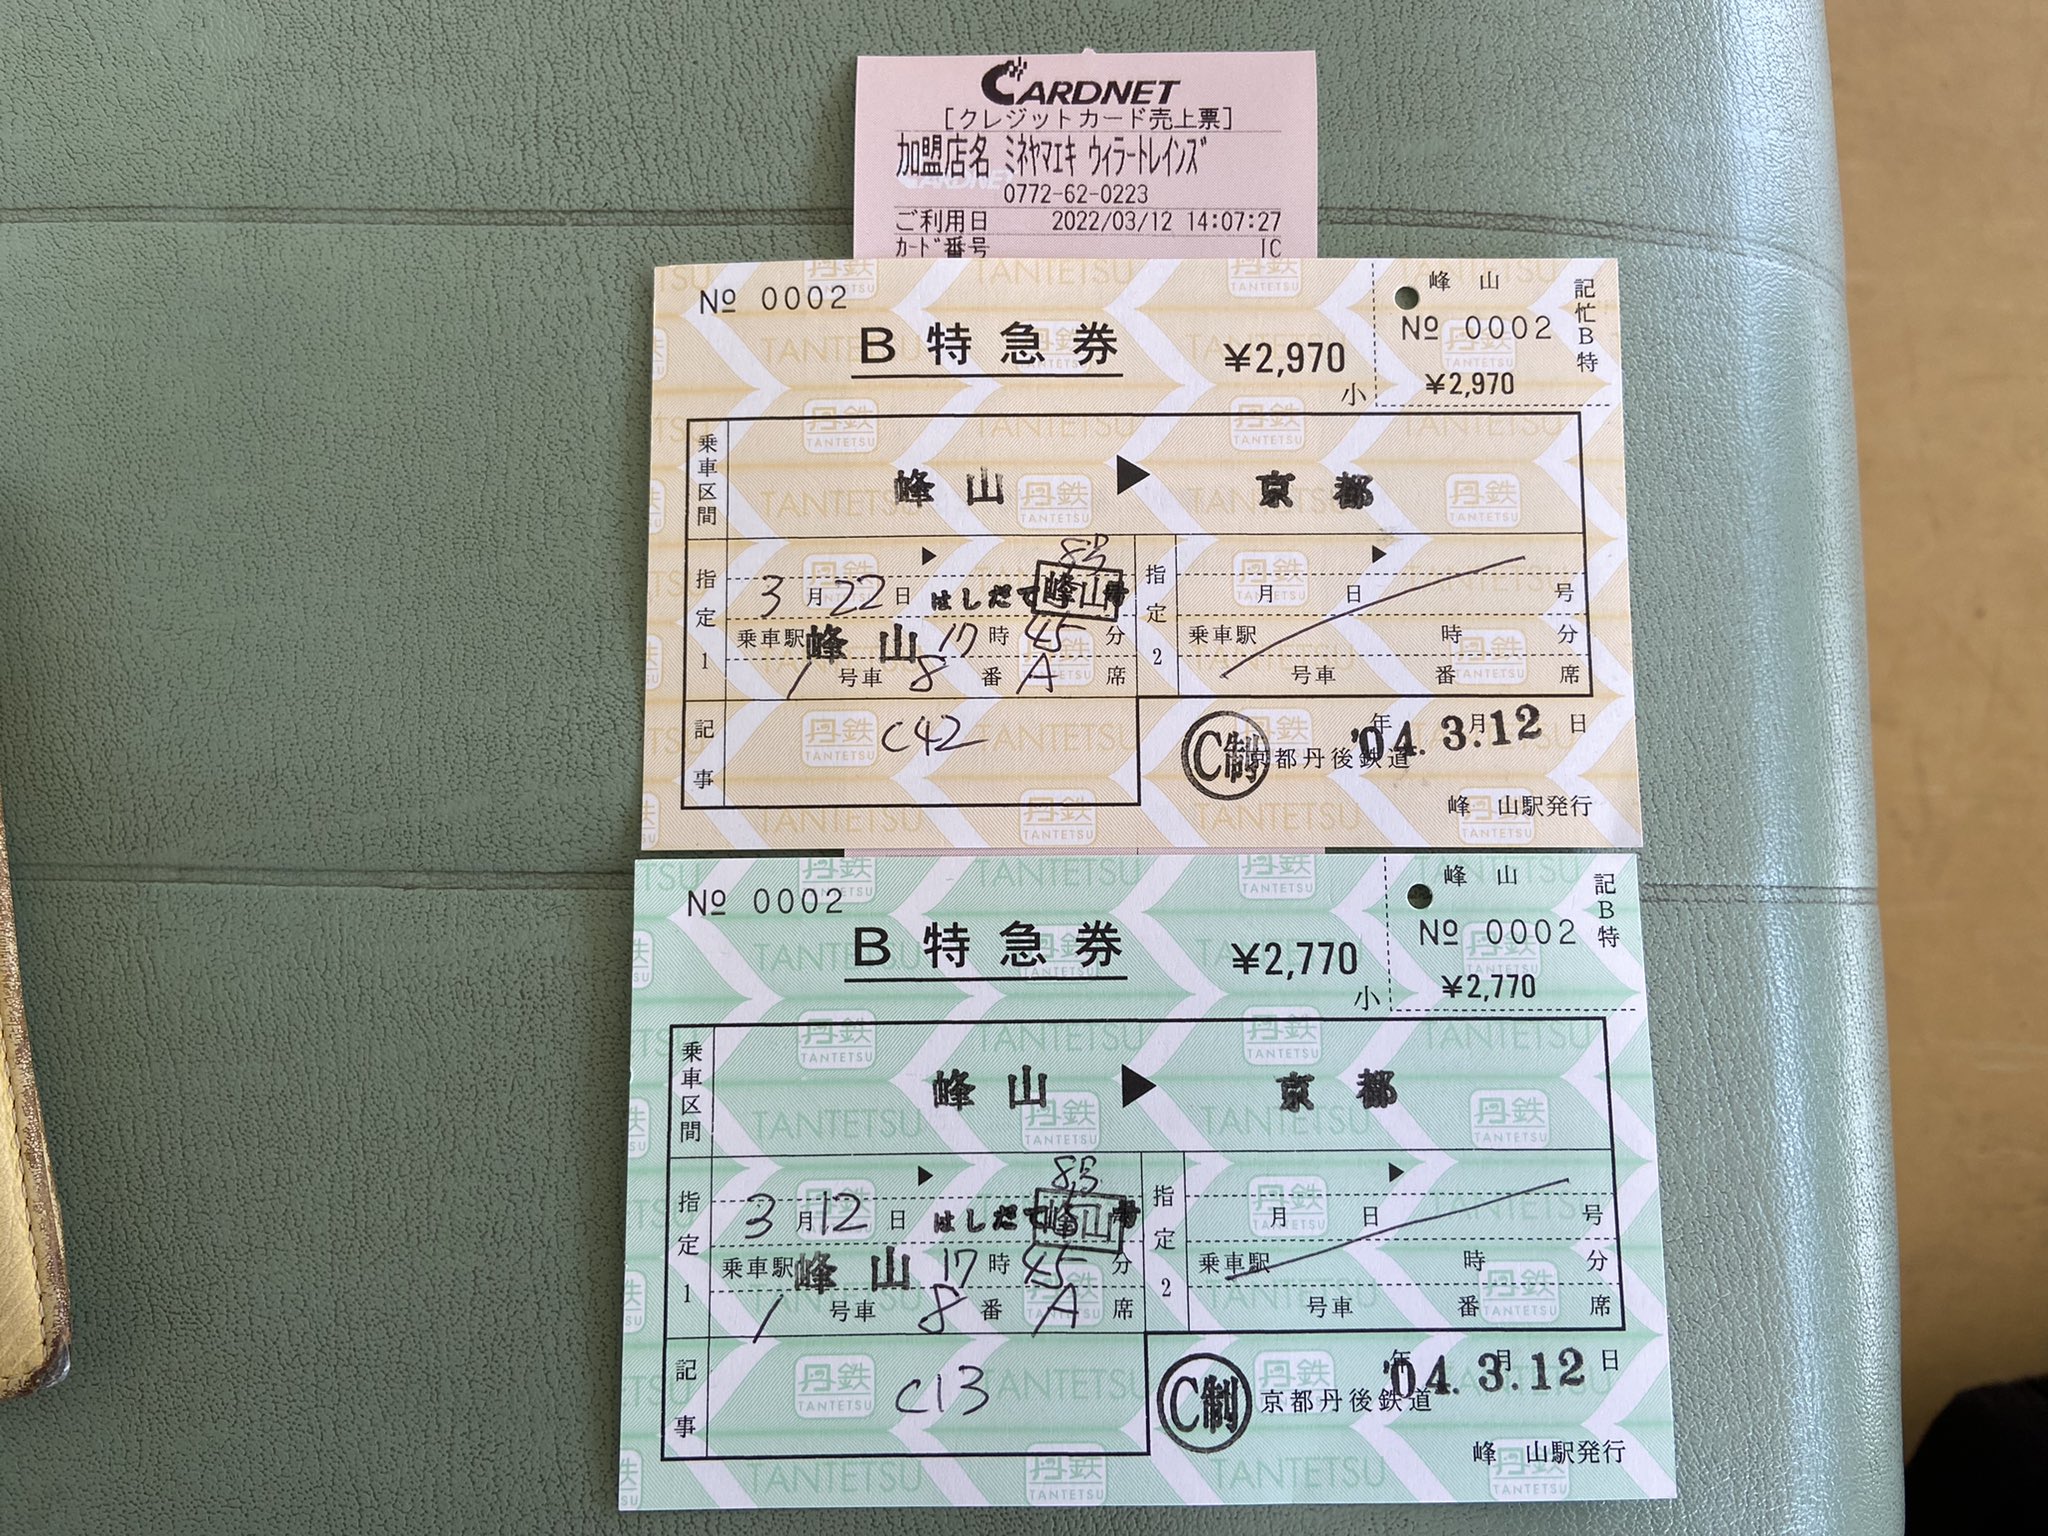 CARDNET
[クレジットカード売上票]
加盟店名 ミネヤマエキ ウィラートレインズ
0772-62-0223
ご利用日 2022/03/12 14:07:27
カード番号 IC
№ 0002
B特急券
¥2,970
小
峰 山
№ 0002
¥2,970
記忙B特
乗車区間
峰 山 ▶ 京 都
指定1
▶
8号
3月22日 はしだて 峰山 号
乗車駅 峰 山 17時45分
1号車 8番 A席
指定2
▶
月 日 号
乗車駅 時 分
号車 番 席
記事
C42
C制
'04.3.12
年 月 日
京都丹後鉄道
峰 山駅発行
№ 0002
B特急券
¥2,770
小
峰 山
№ 0002
¥2,770
記B特
乗車区間
峰 山 ▶ 京 都
指定1
▶
8号
3月12日 はしだて 峰山 号
乗車駅 峰 山 17時45分
1号車 8番 A席
指定2
▶
月 日 号
乗車駅 時 分
号車 番 席
記事
C13
C制
'04.3.12
年 月 日
京都丹後鉄道
峰 山駅発行
丹鉄
TANTETSU